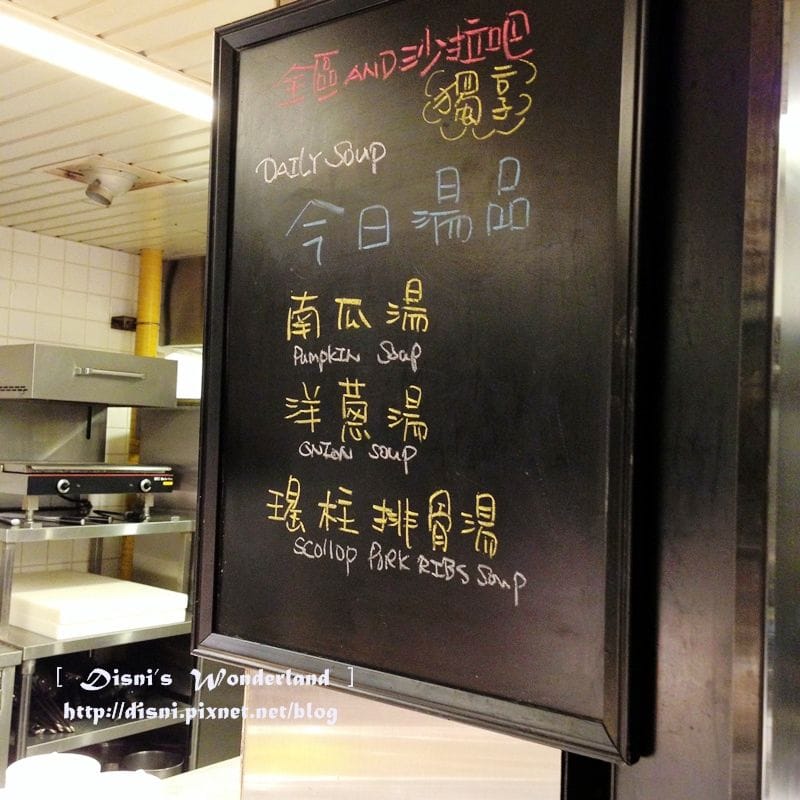 全區AND沙拉吧
獨享
DAILY SOUP
今日湯品
南瓜湯
PUMPKIN Soup
洋蔥湯
ONION SOUP
瑤柱排骨湯
Scollop PORK RIBS Soup
[ Disni's Wonderland ]
http://disni.pixnet.net/blog